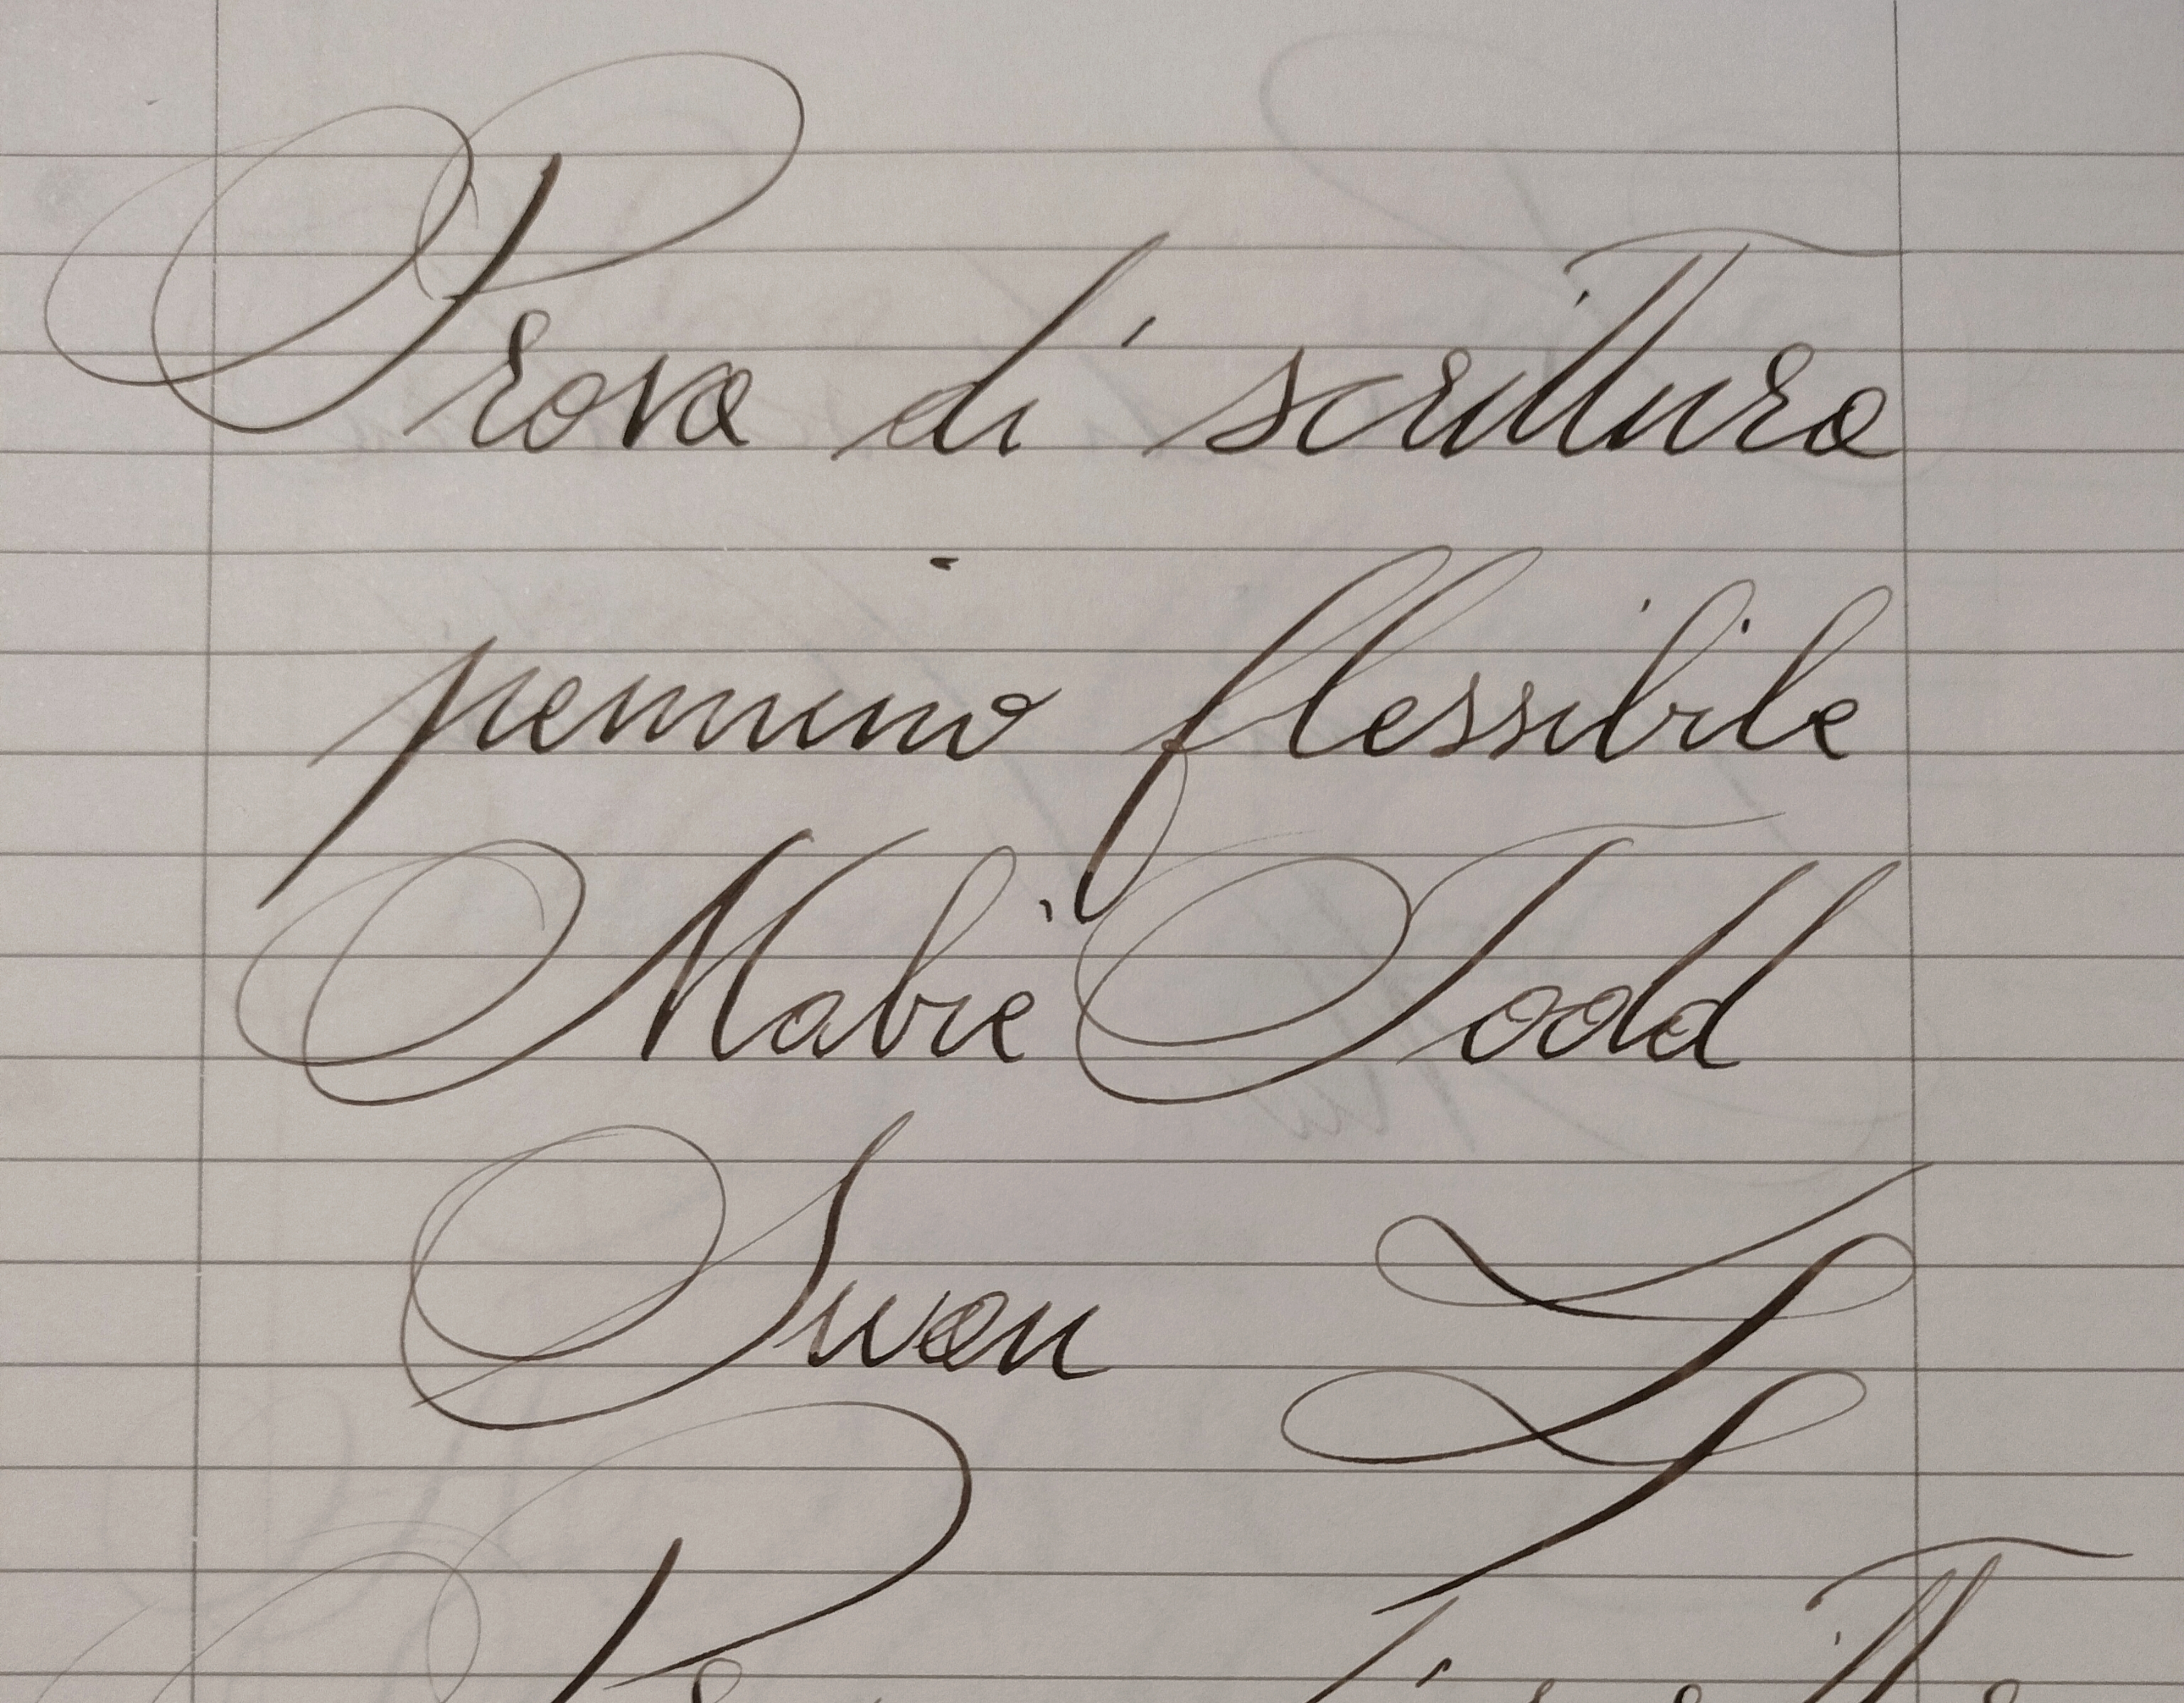 Prova di scrittura
pennino flessibile
Mabie Todd
Swan